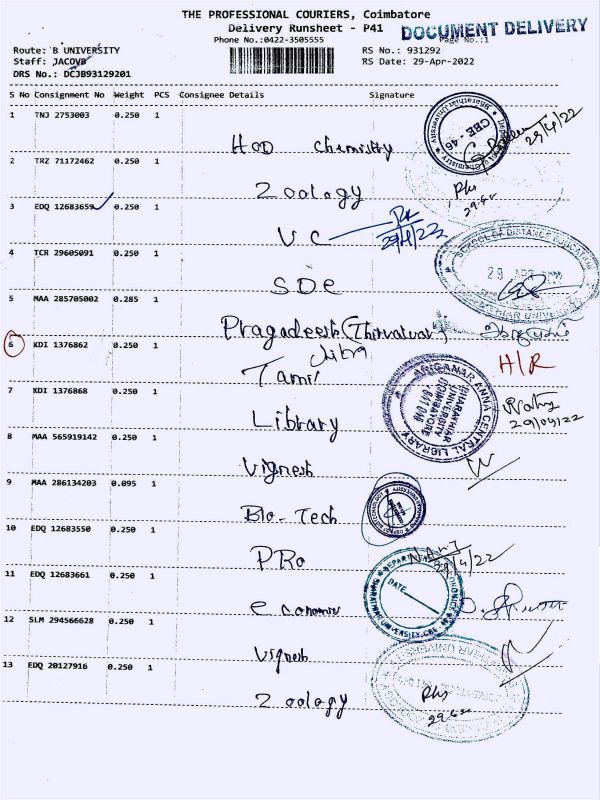 THE PROFESSIONAL COURIERS, Coimbatore
Delivery Runsheet - P41
DOCUMENT DELIVERY
Phone No.:0422-3505555
Page No.:1
Route: B UNIVERSITY
RS No.: 931292
Staff: JACOVB
RS Date: 29-Apr-2022
DRS No.: DCJB93129201
S No Consignment No Weight PCS Consignee Details Signature
1 TNJ 2753003 0.250 1
HOD Chemistry
CBE - 46
29/4/22
2 TRZ 71172462 0.250 1
Zoology
3 EDQ 12683659 0.250 1
VC
29/4/22
4 TCR 29605091 0.250 1
SDE
SCHOOL OF DISTANCE EDUCATION
29 APR 2022
BHARATHIAR UNIVERSITY
5 MAA 285705002 0.285 1
Pragadeesh (Thiruvalluvar)
6 KDI 1376862 0.250 1
Tamil
H/R
7 KDI 1376868 0.250 1
Library
ARIGNAR ANNA CENTRAL LIBRARY
BHARATHIAR
UNIVERSITY
COIMBATORE
641 046
29/04/22
8 MAA 565919142 0.250 1
Vignesh
9 MAA 286134203 0.095 1
Bio-Tech
10 EDQ 12683550 0.250 1
PRO
29/4/22
11 EDQ 12683661 0.250 1
economics
DATE
BHARATHIAR UNIVERSITY, CBE
12 SLM 294566628 0.250 1
Vignesh
13 EDQ 20127916 0.250 1
Zoology